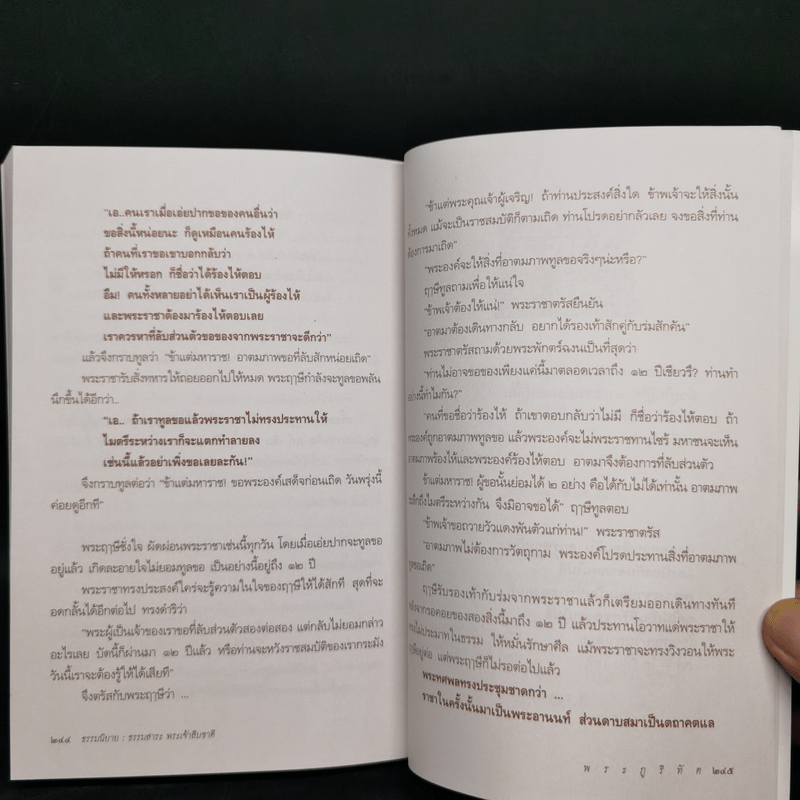 "เอ..คนเราเมื่อเอ่ยปากขอของคนอื่นว่า
ขอสิ่งนี้หน่อยนะ ก็ดูเหมือนคนร้องไห้
ถ้าคนที่เราขอเขาบอกกลับว่า
ไม่มีให้หรอก ก็ชื่อว่าได้ร้องไห้ตอบ
อืม! คนทั้งหลายอย่าได้เห็นเราเป็นผู้ร้องไห้
และพระราชาต้องมาร้องไห้ตอบเลย
เราควรหาที่ลับส่วนตัวขอของจากพระราชาจะดีกว่า"
แล้วจึงกราบทูลว่า "ข้าแต่มหาราช! อาตมภาพขอที่ลับสักหน่อยเถิด"
พระราชารับสั่งทหารให้ถอยออกไปให้หมด พระฤาษีกำลังจะทูลขอพลัน
นึกขึ้นได้อีกว่า..
"เอ.. ถ้าเราทูลขอแล้วพระราชาไม่ทรงประทานให้
ไมตรีระหว่างเราก็จะแตกทำลายลง
เช่นนี้แล้วอย่าเพิ่งขอเลยละกัน!"
จึงกราบทูลต่อว่า "ข้าแต่มหาราช! ขอพระองค์เสด็จก่อนเถิด วันพรุ่งนี้
ค่อยดูอีกที"
พระฤาษีชั่งใจ ผัดผ่อนพระราชาเช่นนี้ทุกวัน โดยเมื่อเอ่ยปากจะทูลขอ
อยู่แล้ว เกิดละอายใจไม่ยอมทูลขอ เป็นอย่างนี้อยู่ถึง ๑๒ ปี
พระราชาทรงประสงค์ใคร่จะรู้ความในใจของฤาษีให้ได้สักที สุดที่จะ
อดกลั้นได้อีกต่อไป ทรงดำริว่า
"พระผู้เป็นเจ้าของเราขอที่ลับส่วนตัวสองต่อสอง แต่กลับไม่ยอมกล่าว
อะไรเลย บัดนี้ก็ผ่านมา ๑๒ ปีแล้ว หรือท่านจะหวังราชสมบัติของเรากระมัง
วันนี้เราจะต้องรู้ให้ได้เสียที"
จึงตรัสกับพระฤาษีว่า ...
๒๔๔ ธรรมนิยาย : ธรรมสาระ พระเจ้าสิบชาติ
"ข้าแต่พระคุณเจ้าผู้เจริญ! ถ้าท่านประสงค์สิ่งใด ข้าพเจ้าจะให้สิ่งนั้น
ทั้งหมด แม้จะเป็นราชสมบัติก็ตามเถิด ท่านโปรดอย่ากลัวเลย จงขอสิ่งที่ท่าน
ต้องการมาเถิด"
"พระองค์จะให้สิ่งที่อาตมภาพทูลขอจริงๆน่ะหรือ?"
ฤาษีทูลถามเพื่อให้แน่ใจ
"ข้าพเจ้าต้องให้แน่!" พระราชาตรัสยืนยัน
"อาตมาต้องเดินทางกลับ อยากได้รองเท้าสักคู่กับร่มสักคัน"
พระราชาตรัสถามด้วยพระพักตร์ฉงนเป็นที่สุดว่า
"ท่านไม่อาจขอของเพียงแค่นี้มาตลอดเวลาถึง ๑๒ ปีเชียวรึ? ท่านทำ
อย่างนี้ทำไมกัน?"
"คนที่ขอชื่อว่าร้องไห้ ถ้าเขาตอบกลับว่าไม่มี ก็ชื่อว่าร้องไห้ตอบ ถ้า
พระองค์ถูกอาตมภาพทูลขอ แล้วพระองค์จะไม่พระราชทานไซร้ มหาชนจะเห็น
อาตมภาพร้องไห้และพระองค์ร้องไห้ตอบ อาตมาจึงต้องการที่ลับส่วนตัว
ข้าแต่มหาราช! ผู้ขอนั้นย่อมได้ ๒ อย่าง คือได้กับไม่ได้เท่านั้น อาตมภาพ
ระลึกถึงไมตรีระหว่างกัน จึงมิอาจขอได้" ฤาษีทูลตอบ
"ข้าพเจ้าขอถวายวัวแดงพันตัวแก่ท่าน!" พระราชาตรัส
"อาตมภาพไม่ต้องการวัตถุกาม พระองค์โปรดประทานสิ่งที่อาตมภาพ
ทูลขอเถิด"
ฤาษีรับรองเท้ากับร่มจากพระราชาแล้วก็เตรียมออกเดินทางทันที
หลังจากรอคอยของสองสิ่งนี้มาถึง ๑๒ ปี แล้วประทานโอวาทแด่พระราชาให้
ทรงไม่ประมาทในธรรม ให้หมั่นรักษาศีล แม้พระราชาจะทรงวิงวอนให้พระ
ฤาษีอยู่ต่อ แต่พระฤาษีก็ไม่รอต่อไปแล้ว
พระทศพลทรงประชุมชาดกว่า ...
ราชาในครั้งนั้นมาเป็นพระอานนท์ ส่วนดาบสมาเป็นตถาคตแล
พระภูริทัต ๒๔๕